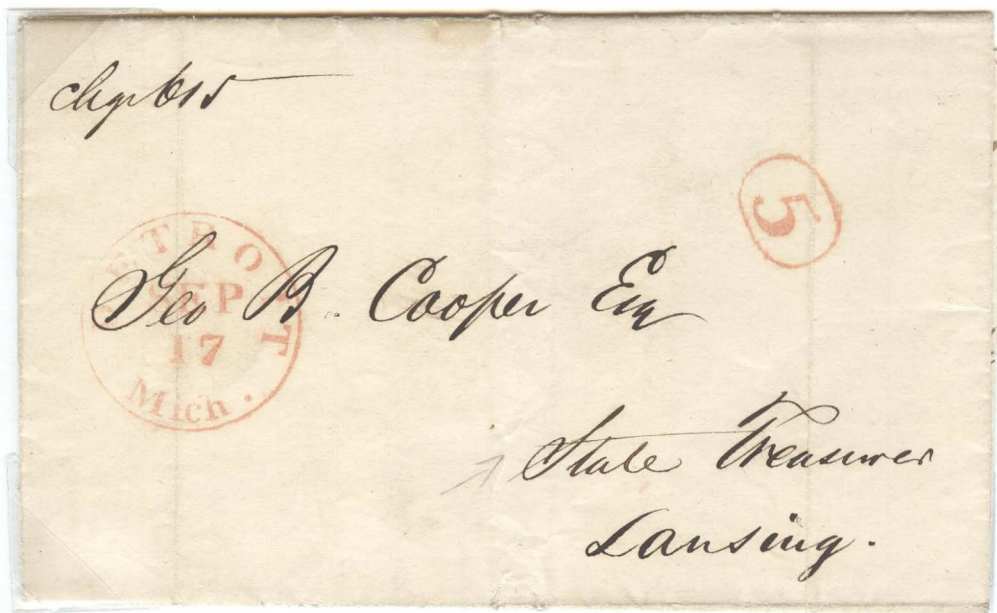 5
DETROIT
SEP
17
Mich.
Geo B. Cooper Esq
State Treasurer
Lansing.